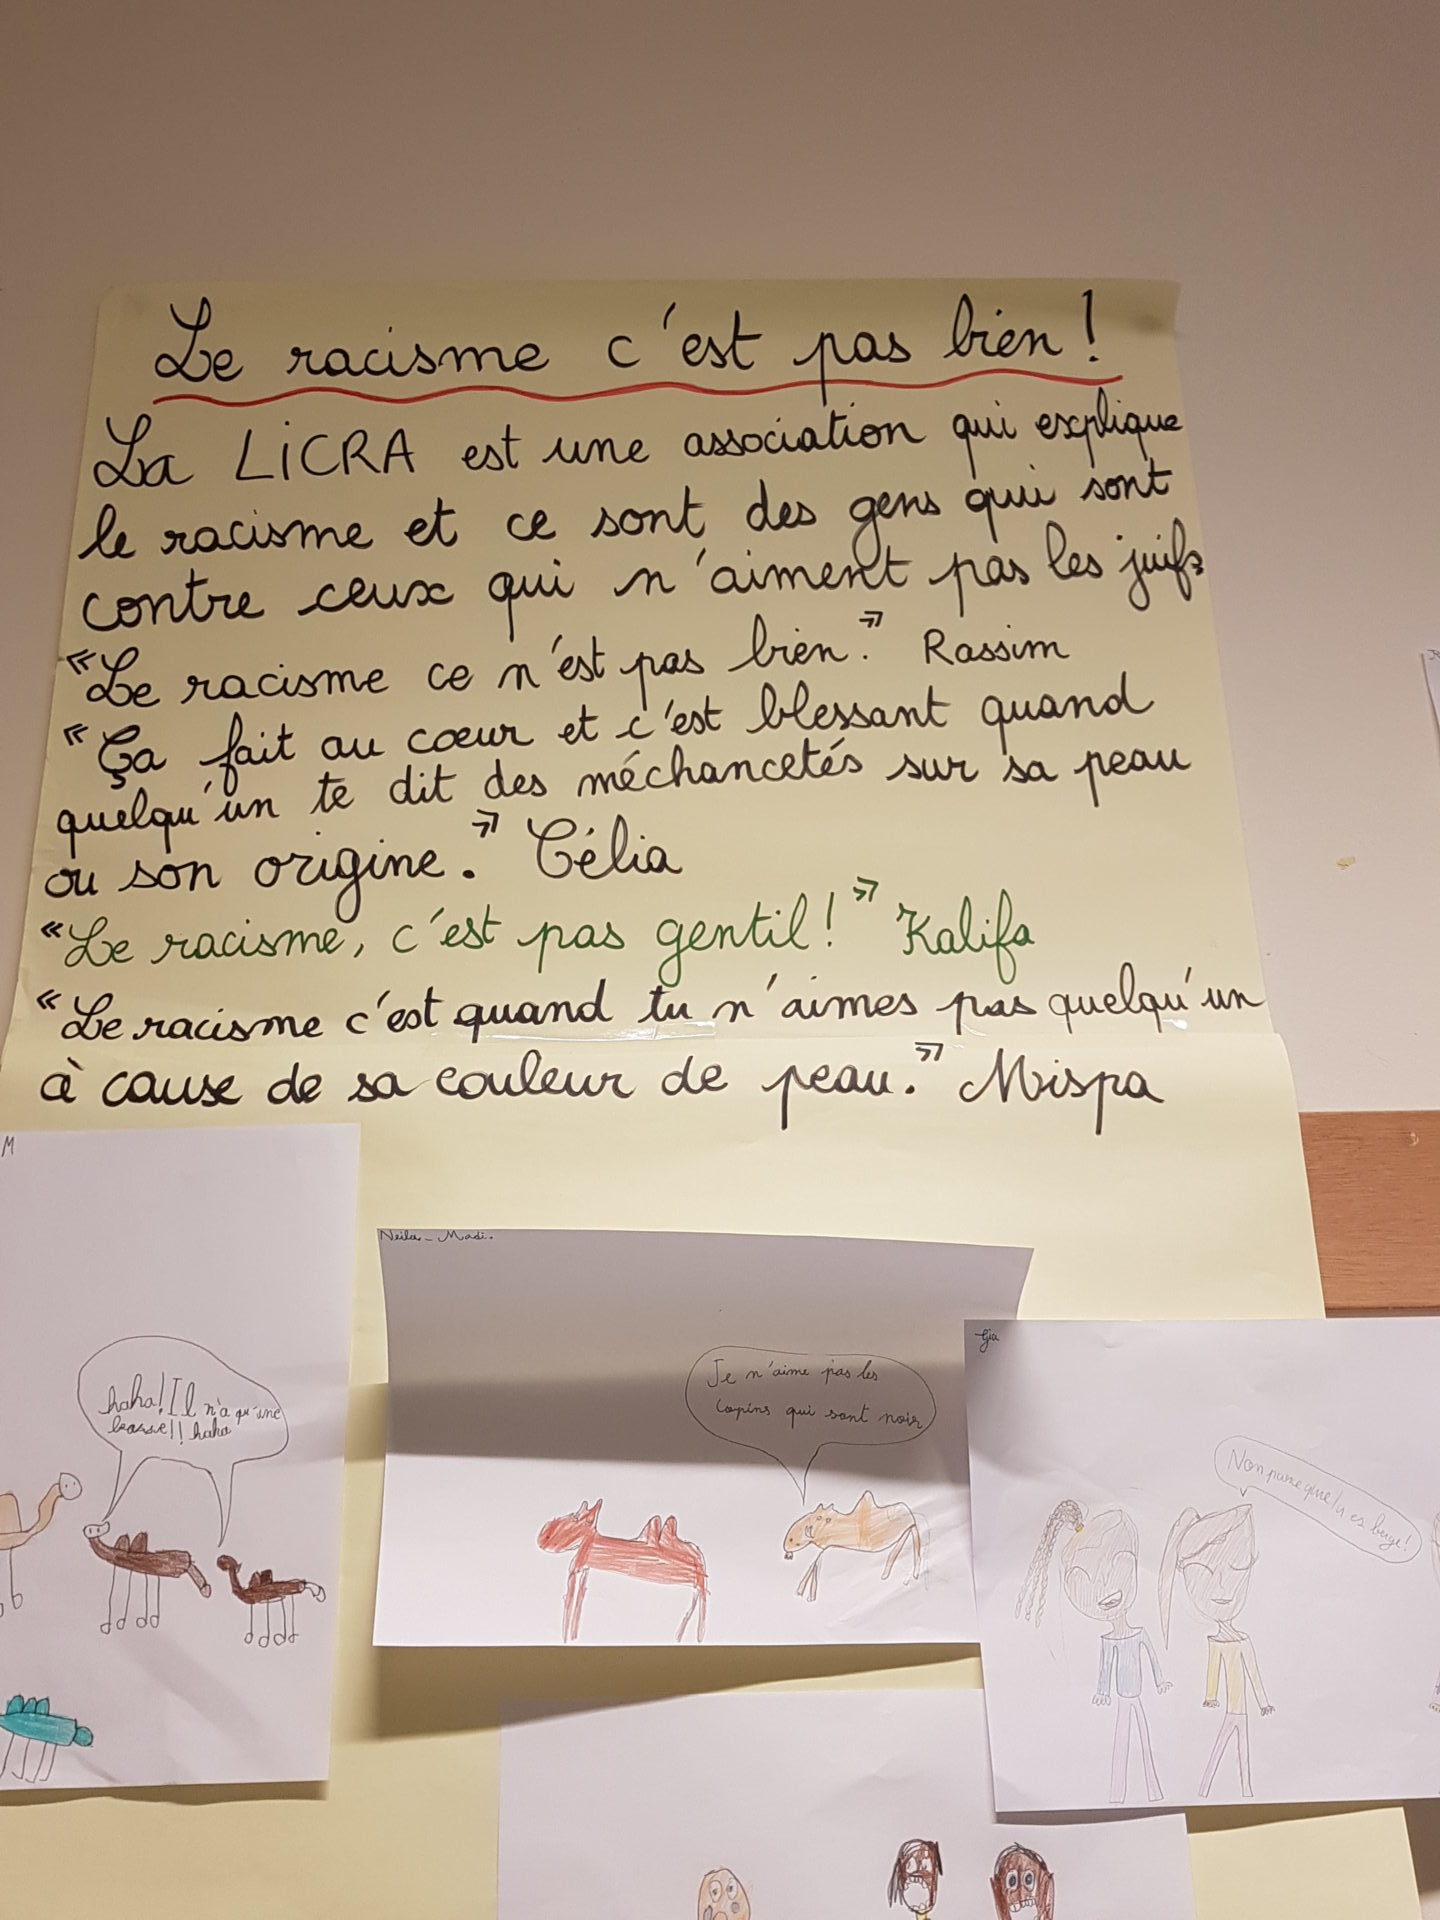 Le racisme c'est pas bien !
La LiCRA est une association qui explique
le racisme et ce sont des gens qui sont
contre ceux qui n'aiment pas les juifs
« Le racisme ce n'est pas bien. » Rassim
« Ça fait au cœur et c'est blessant quand
quelqu'un te dit des méchancetés sur sa peau
ou son origine. » Célia
« Le racisme, c'est pas gentil ! » Kalifa
« Le racisme c'est quand tu n'aimes pas quelqu'un
à cause de sa couleur de peau. » Mispa
M
haha! Il n'a qu'une
bosse!! haha
Neila - Madi.
Je n'aime pas les
copins qui sont noir
Gia
Non parce que tu es beige!